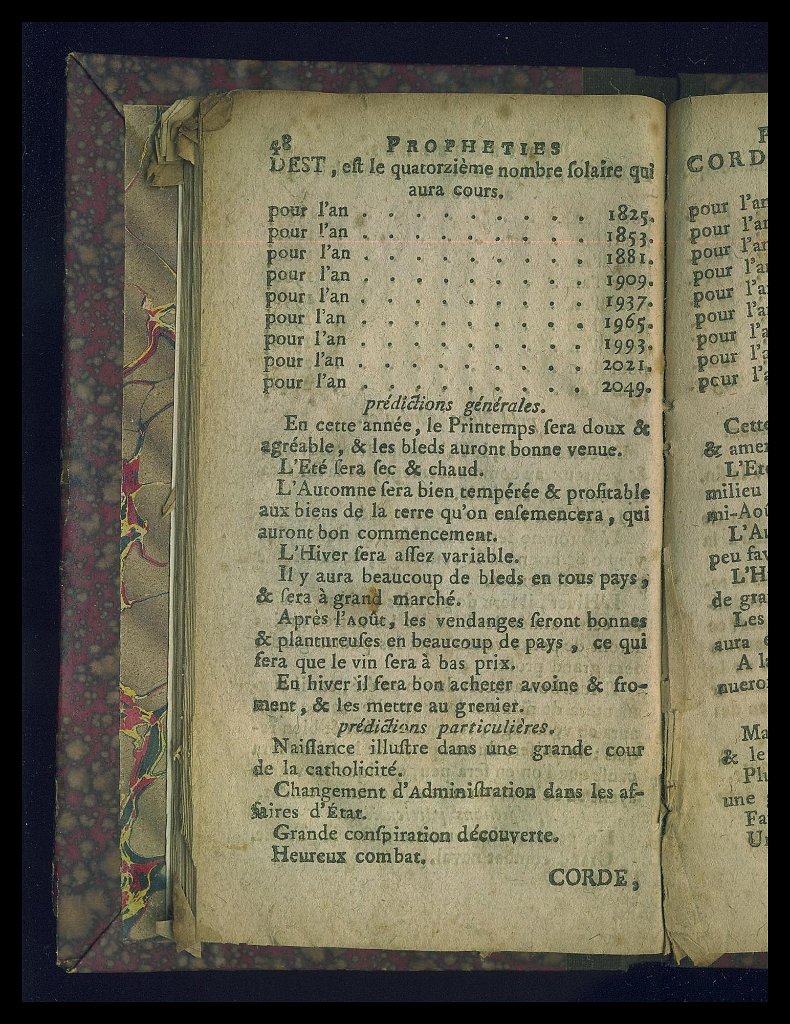 48 PROPHETIES
DEST, eſt le quatorzième nombre ſolaire qui
aura cours.
pour l'an . . . . . . . . . 1825.
pour l'an . . . . . . . . . 1853.
pour l'an . . . . . . . . . 1881.
pour l'an . . . . . . . . . 1909.
pour l'an . . . . . . . . . 1937.
pour l'an . . . . . . . . . 1965.
pour l'an . . . . . . . . . 1993.
pour l'an . . . . . . . . . 2021.
pour l'an . . . . . . . . . 2049.
prédictions générales.
En cette année, le Printemps ſera doux &
agréable, & les bleds auront bonne venue.
L'Eté ſera ſec & chaud.
L'Automne ſera bien tempérée & profitable
aux biens de la terre qu'on enſemencera, qui
auront bon commencement.
L'Hiver ſera aſſez variable.
Il y aura beaucoup de bleds en tous pays,
& ſera à grand marché.
Après l'Août, les vendanges ſeront bonnes
& plantureuſes en beaucoup de pays, ce qui
fera que le vin ſera à bas prix.
En hiver il ſera bon acheter avoine & fro-
ment, & les mettre au grenier.
prédictions particulières.
Naiſſance illuſtre dans une grande cour
de la catholicité.
Changement d'Adminiſtration dans les af-
faires d'État.
Grande conſpiration découverte.
Heureux combat.
CORDE,
CORD
pour l'an
pour l'an
pour l'an
pour l'a
pour l'a
pour l'a
pour l'a
pour l'a
pour l'a
Cette
& ame
L'Eté
milieu
mi-Aoû
L'Au
peu fav
L'H
de gra
Les
aura
A la
nuero
Ma
& le
Plu
une
Fa
U